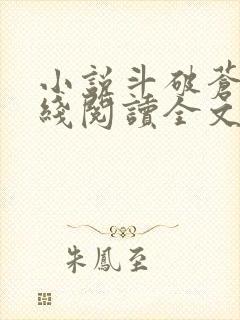 小說斗破蒼
綫閱讀全文
朱鳳至